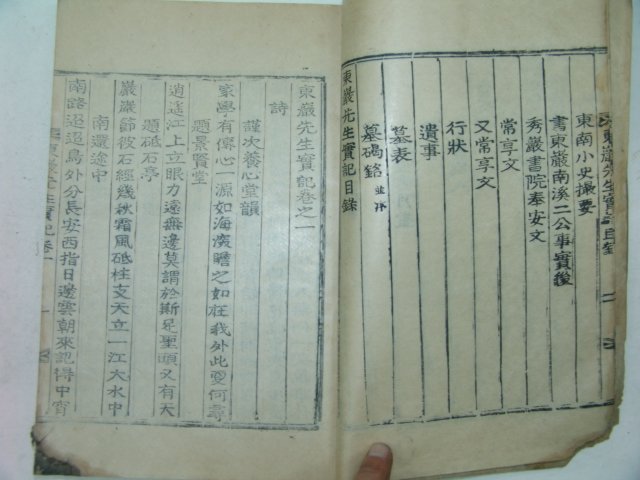 東南小史撮要
書東巖南溪二公事實後
秀巖書院奉安文
常享文
又常享文
行狀
遺事
墓表
墓碣銘 並序
東巖先生實記目錄
東巖先生實記卷之一
詩
謹次養心堂韻
家學有傳心一源如海廣瞻之如在我外此更何尋
題景賢堂
逍遙江上立眼力遠無邊莫謂於斯足聖頭又有天
題砥石亭
巖巖節彼石經幾秋霜風砥柱支天立一江大水中
南還途中
南路迢迢鳥外分長安西指日邊雲朝來記得中宵